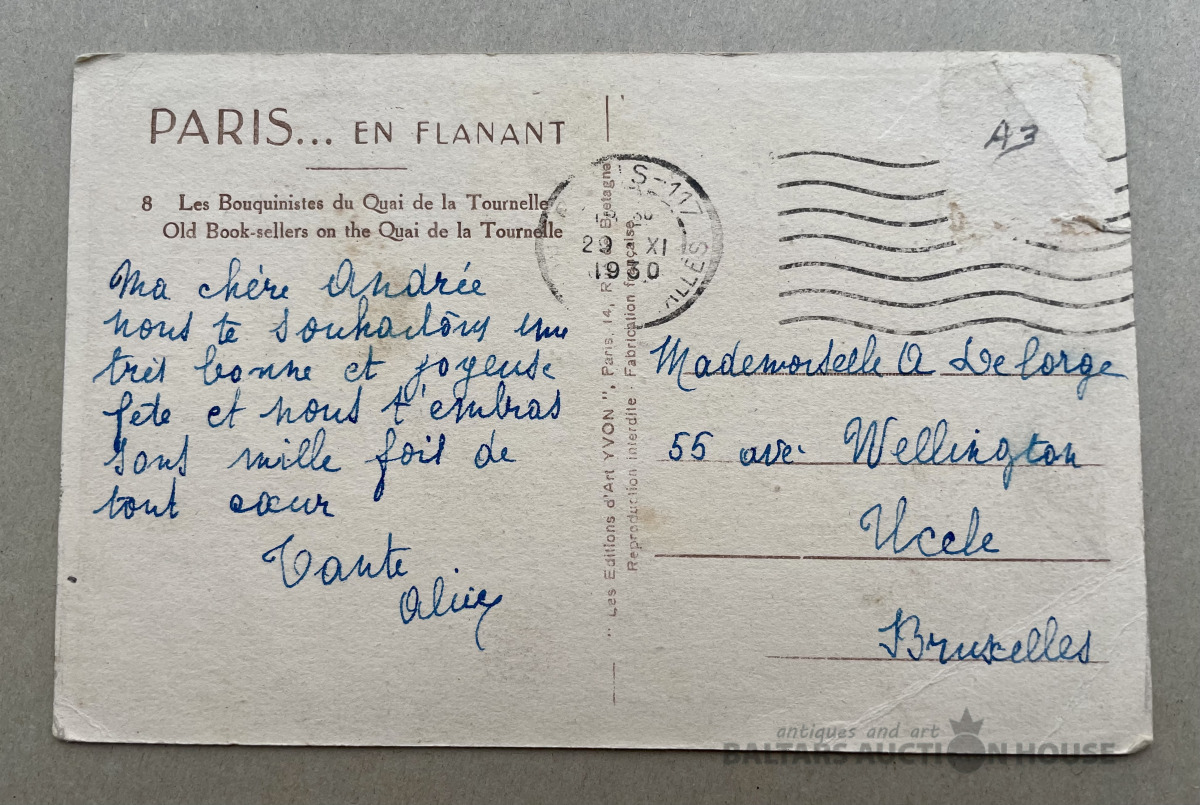 PARIS... EN FLANANT
8 Les Bouquinistes du Quai de la Tournelle
Old Book-sellers on the Quai de la Tournelle
Ma chère Andrée
nous te souhaitons une
très bonne et joyeuse
fête et nous t'embras
sons mille fois de
tout cœur
Tante
Alice
" Les Editions d'Art YVON ", Paris, 14, R. de Bretagne
Reproduction interdite - Fabrication française
29 XI
1930
A3
Mademoiselle A Delorge
55 ave. Wellington
Uccle
Bruxelles
antiques and art
BALTARS AUCTION HOUSE